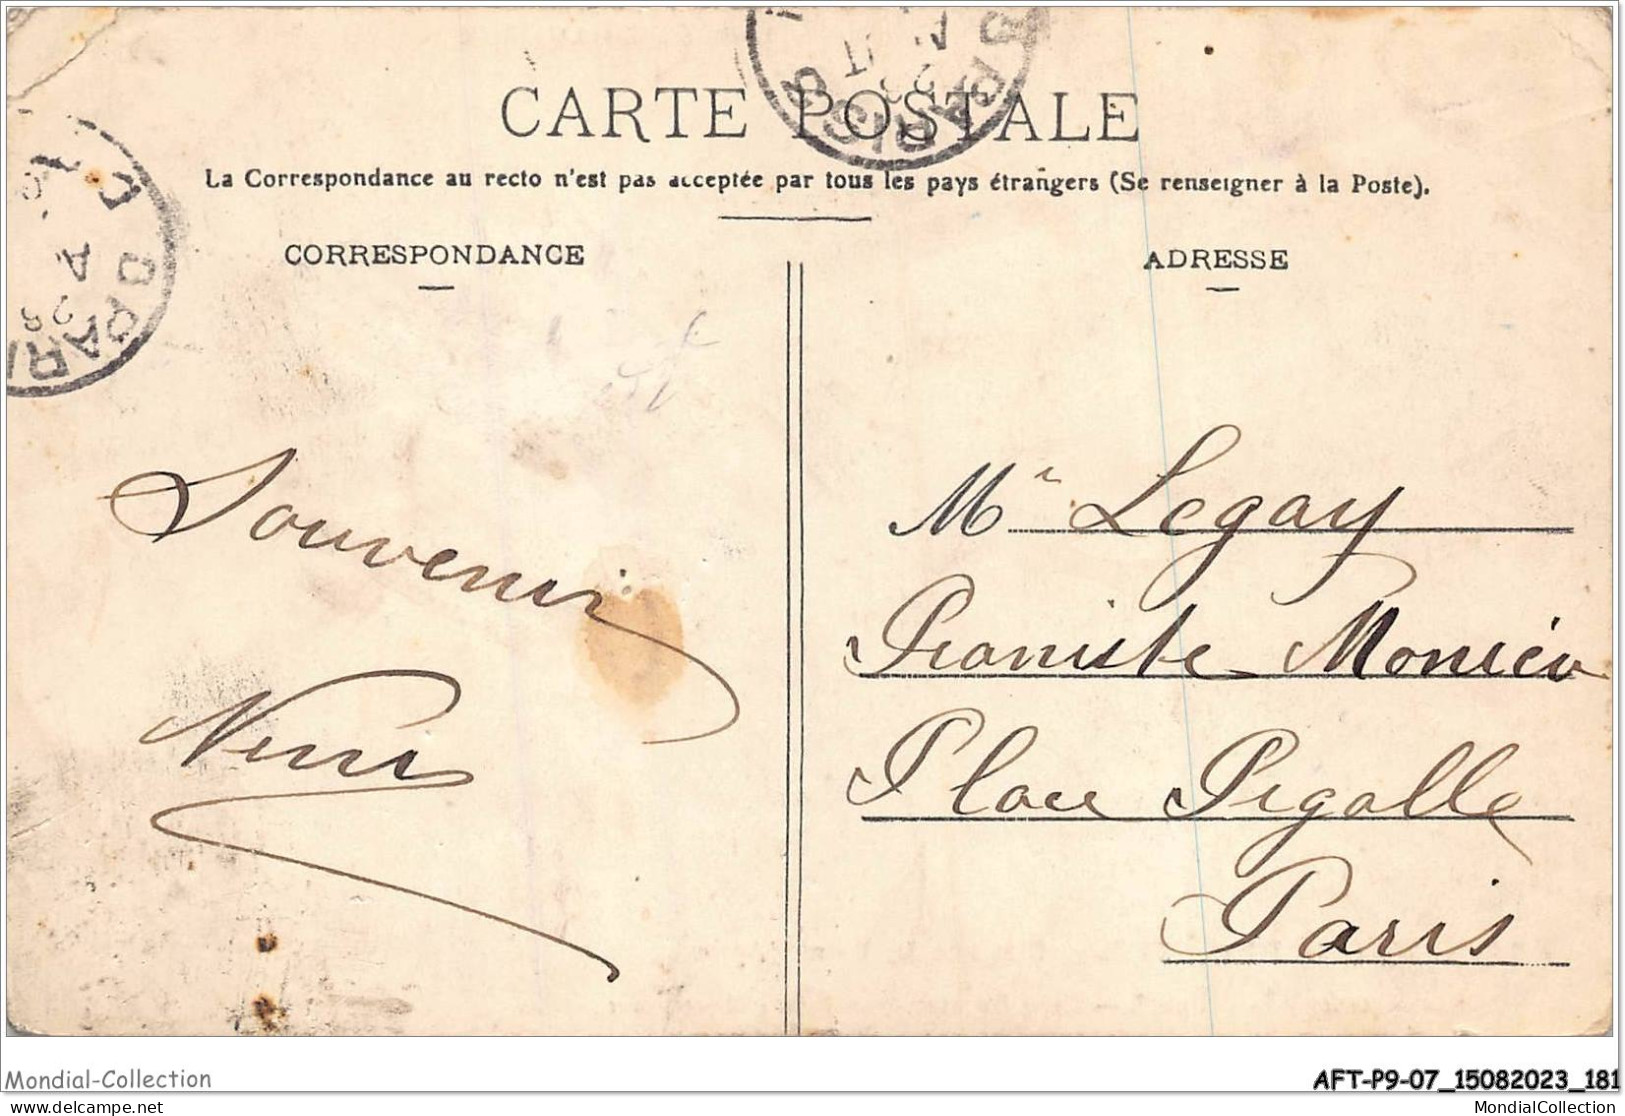 CARTE POSTALE
La Correspondance au recto n'est pas acceptée par tous les pays étrangers (Se renseigner à la Poste).
CORRESPONDANCE
ADRESSE
Souvenir
Mr Legay
Pianiste
Place Pigalle
Paris
PARIS
PARI
Mondial-Collection
AFT-P9-07_15082023_181
delcampe.net
MondialCollection